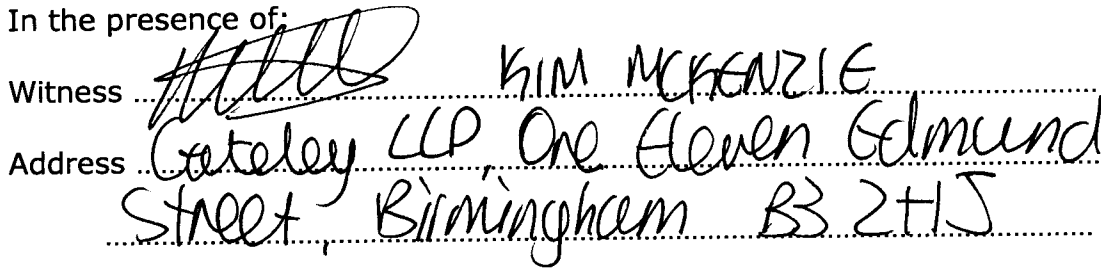 In the presence of:
Witness KIM MCKENZIE
Address Gateley LLP, One Eleven Edmund
Street, Birmingham B3 2HJ